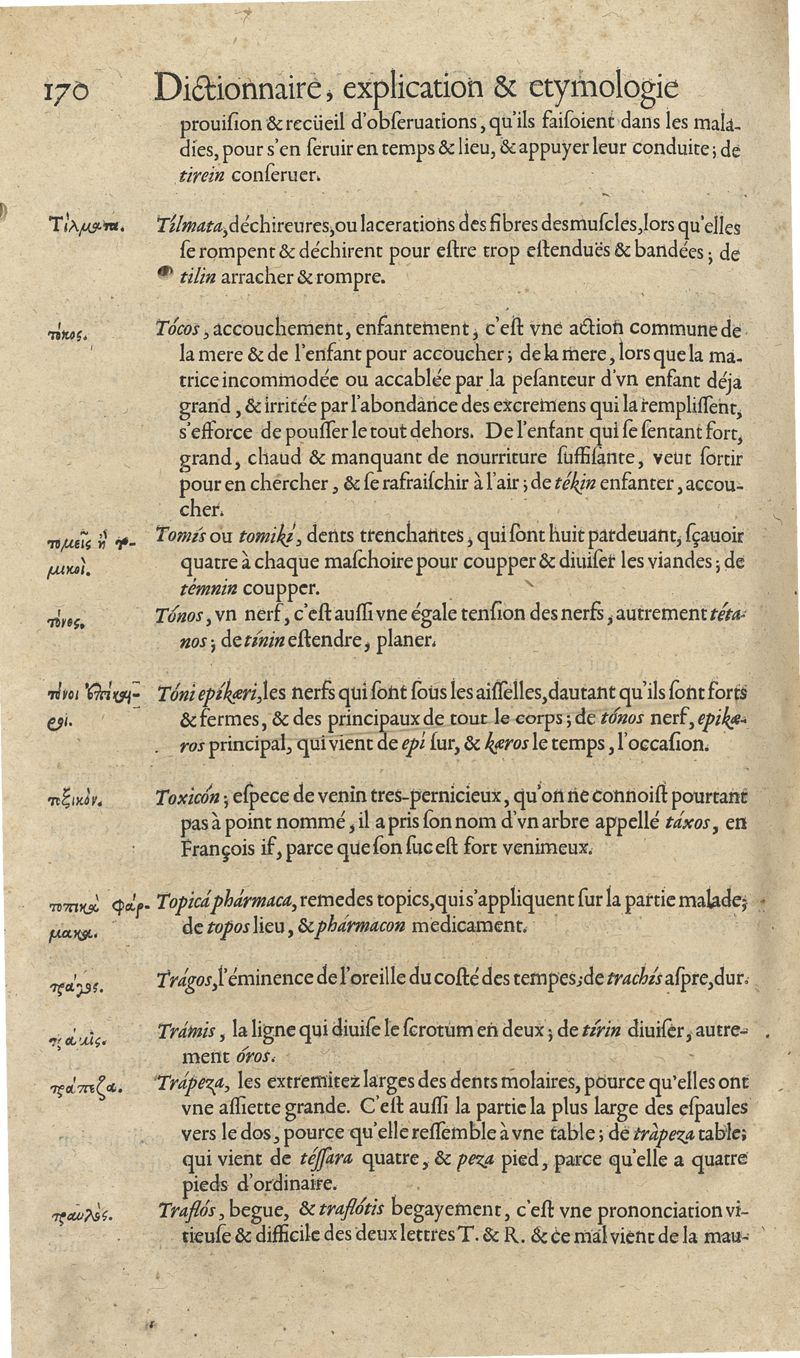 170 Dictionnaire, explication & etymologie
prouiſion & recüeil d'obſeruations, qu'ils faiſoient dans les mala-
dies, pour s'en ſeruir en temps & lieu, & appuyer leur conduite; de
tirein conſeruer.
Τίλματα. Tílmata, déchireures, ou lacerations des fibres des muſcles, lors qu'elles
ſe rompent & déchirent pour eſtre trop eſtenduës & bandées; de
tilin arracher & rompre.
τόκος. Tócos, accouchement, enfantement, c'eſt vne action commune de
la mere & de l'enfant pour accoucher; de la mere, lors que la ma-
trice incommodée ou accablée par la peſanteur d'vn enfant déja
grand, & irritée par l'abondance des excremens qui la rempliſſent,
s'efforce de pouſſer le tout dehors. De l'enfant qui ſe ſentant fort,
grand, chaud & manquant de nourriture ſuffiſante, veut ſortir
pour en chercher, & ſe rafraiſchir à l'air; de tékin enfanter, accou-
cher.
τομεῖς ἢ το- Tomís ou tomikí, dents trenchantes, qui ſont huit pardeuant, ſçauoir
μικοὶ. quatre à chaque maſchoire pour coupper & diuiſer les viandes; de
témnin coupper.
τόνος. Tónos, vn nerf, c'eſt auſſi vne égale tenſion des nerfs, autrement téta-
nos; de tínin eſtendre, planer.
τόνοι ἐπίκαι- Tóni epíkæri, les nerfs qui ſont ſous les aiſſelles, dautant qu'ils ſont forts
ροι. & fermes, & des principaux de tout le corps; de tónos nerf, epikæ-
ros principal, qui vient de epí ſur, & kæros le temps, l'occaſion.
τοξικόν. Toxicón; eſpece de venin tres-pernicieux, qu'on ne connoiſt pourtant
pas à point nommé, il a pris ſon nom d'vn arbre appellé táxos, en
François if, parce que ſon ſuc eſt fort venimeux.
τοπικὰ φάρ- Topicá phármaca, remedes topics, qui s'appliquent ſur la partie malade;
μακα. de topos lieu, & phármacon medicament.
τράγος. Trágos, l'éminence de l'oreille du coſté des tempes; de trachís aſpre, dur.
τράμις. Trámis, la ligne qui diuiſe le ſcrotum en deux; de tírin diuiſer, autre-
ment óros.
τράπεζα. Trápeza, les extremitez larges des dents molaires, pource qu'elles ont
vne aſſiette grande. C'eſt auſſi la partie la plus large des eſpaules
vers le dos, pource qu'elle reſſemble à vne table; de tràpeza table;
qui vient de téſſara quatre, & peza pied, parce qu'elle a quatre
pieds d'ordinaire.
τραυλὸς. Traflós, begue, & traflótis begayement, c'eſt vne prononciation vi-
tieuſe & difficile des deux lettres T. & R. & ce mal vient de la mau-